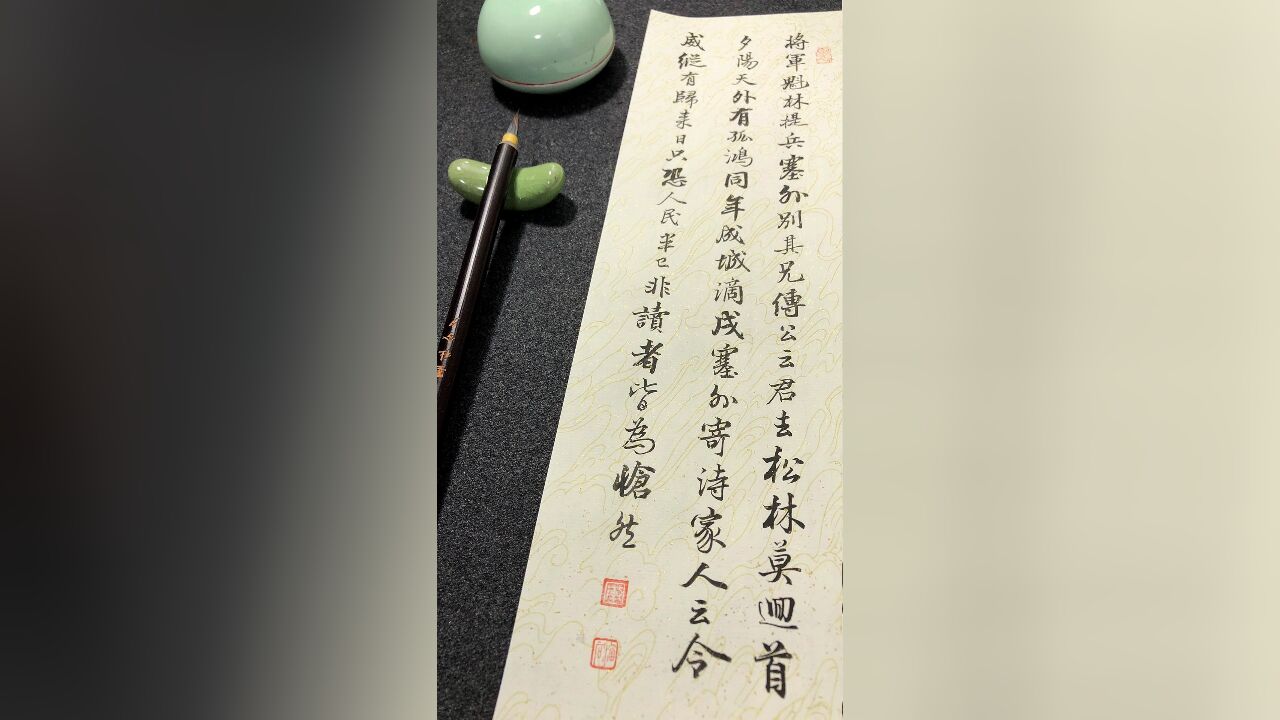 將軍魁林提兵塞外別其兄傅公云君去松林莫迴首
夕陽天外有孤鴻同年成城謫戍塞外寄詩家人云令
威縱有歸来日只恐人民半已非讀者皆為愴然